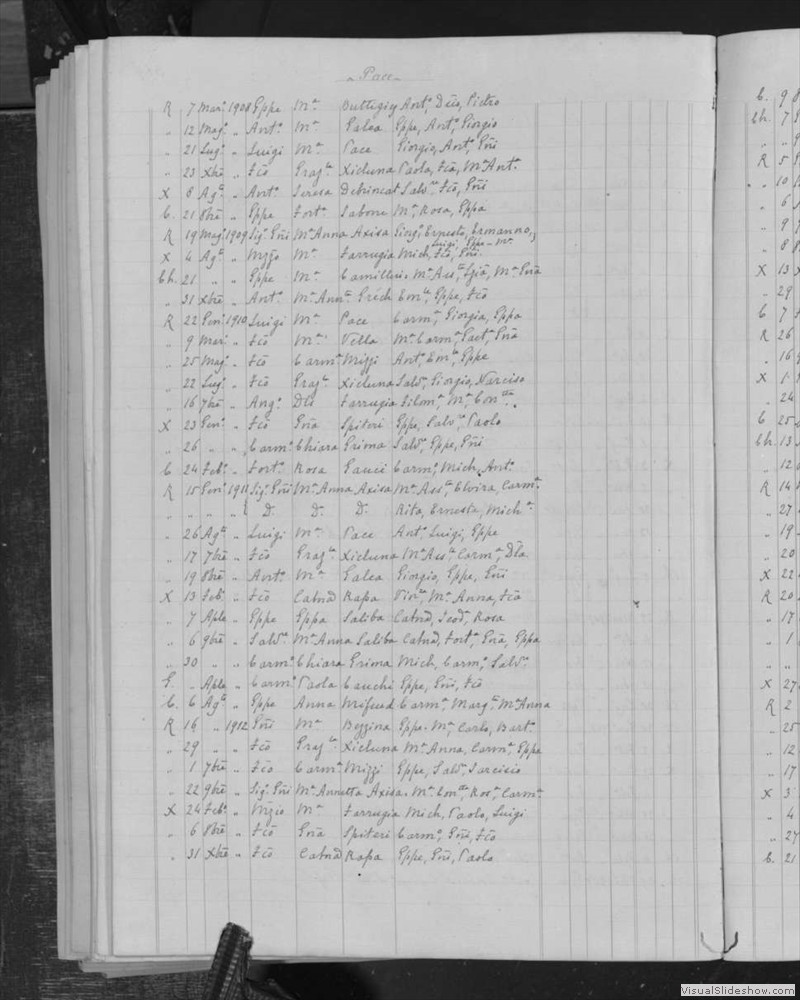 Pace
R 7 Mar. 1908 Eppe Ma Buttigieg Ant. Dco, Pietro
" 12 Mag. " Ant. Ma Galea Eppe, Ant. Giorgio
" 21 Lug. " Luigi Ma Pace Giorgia, Ant. Gni
" 23 Xbre " Fco Graz. Xicluna Paola, Fca, Ma Ant.
X 8 Ag. " Ant. Teresa Debrincat Salv. Fco, Gni
C. 21 8bre " Eppe Fort. Sabona Ma, Rosa, Eppa
R 19 Mag. 1909 Sig. Gni Ma Anna Axisa Giorg. Ernesto, Ermanno,
Luigi, Eppe - Ma
X 4 Ag. " Nizzo Ma Farrugia Mich, Fco, Gni
Ch. 21 " " Eppe Ma Camilleri Ma Ass. Ma Gna
" 31 Xbre " Ant. Ma Ann. Grech Em. Eppe, Fco
R 22 Gen. 1910 Luigi Ma Pace Carm. Giorgia, Eppa
" 9 Mar. " Fco Ma Vella Ma Carm. Gaet. Gna
" 25 Mag. " Fco Carm. Mizzi Ant. Em. Eppe
" 22 Lug. " Fco Graz. Xicluna Salv. Giorgio, Narciso
" 16 7bre " Ang. Dla Farrugia Filom. Ma Con.
X 23 Gen. " Fco Gna Spiteri Eppe, Salv. Paolo
" 26 " " Carm. Chiara Grima Salv. Eppe, Gni
C. 24 Feb. " Fort. Rosa Gauci Carm. Mich, Ant.
R 15 Gen. 1911 Sig. Gni Ma Anna Axisa Ma Ass. Elvira, Carm.
" " " " D. D. D. Rita, Ernesta, Mich.
" 26 Ag. " Luigi Ma Pace Ant. Luigi, Eppe
" 17 7bre " Fco Graz. Xicluna Ma Ass. Carm. Dla
" 19 8bre " Ant. Ma Galea Giorgio, Eppe, Gni
X 13 Feb. " Fco Catnd Rapa Ma Anna, Fca
" 7 Aple " Eppe Eppa Saliba Catnd, Teod. Rosa
" 6 9bre " Salv. Ma Anna Saliba Catnd, Fort. Gna, Eppa
" 30 " " Carm. Chiara Grima Mich, Carm. Salv.
" Aple " Carm. Paola Cauchi Eppe, Gni, Fco
C. 6 Ag. " Eppe Anna Mifsud Carm. Marg. Ma Anna
R 16 " 1912 Gni Ma Bezzina Eppe. Ma, Carlo, Bart.
" 29 " " Fco Graz. Xicluna Ma Anna, Carm. Eppe
" 1 7bre " Fco Carm. Mizzi Eppe, Salv. Tarcisio
" 22 9bre " Sig. Gni Ma Annetta Axisa. Ma Con. Ros. Carm.
X 24 Feb. " Nizio Ma Farrugia Mich, Paolo, Luigi
" 6 8bre " Fco Gna Spiteri Carm. Gni, Fco
" 31 Xbre " Fco Catnd Rapa Eppe, Gni, Paolo
C. 9
Ch. 7
" "
R 5
" 10
" 6
" 9
" 8
X 13
" 29
C 7
R 26
" 16
X 1
" 24
C 25
Ch. 13
" 12
R 14
" 27
" 19
" 20
X 22
R 20
" 17
" 1
" "
X 27
R 2
" 25
" 12
" 17
X 3
" 4
" 27
C. 21
VisualSlideshow.com